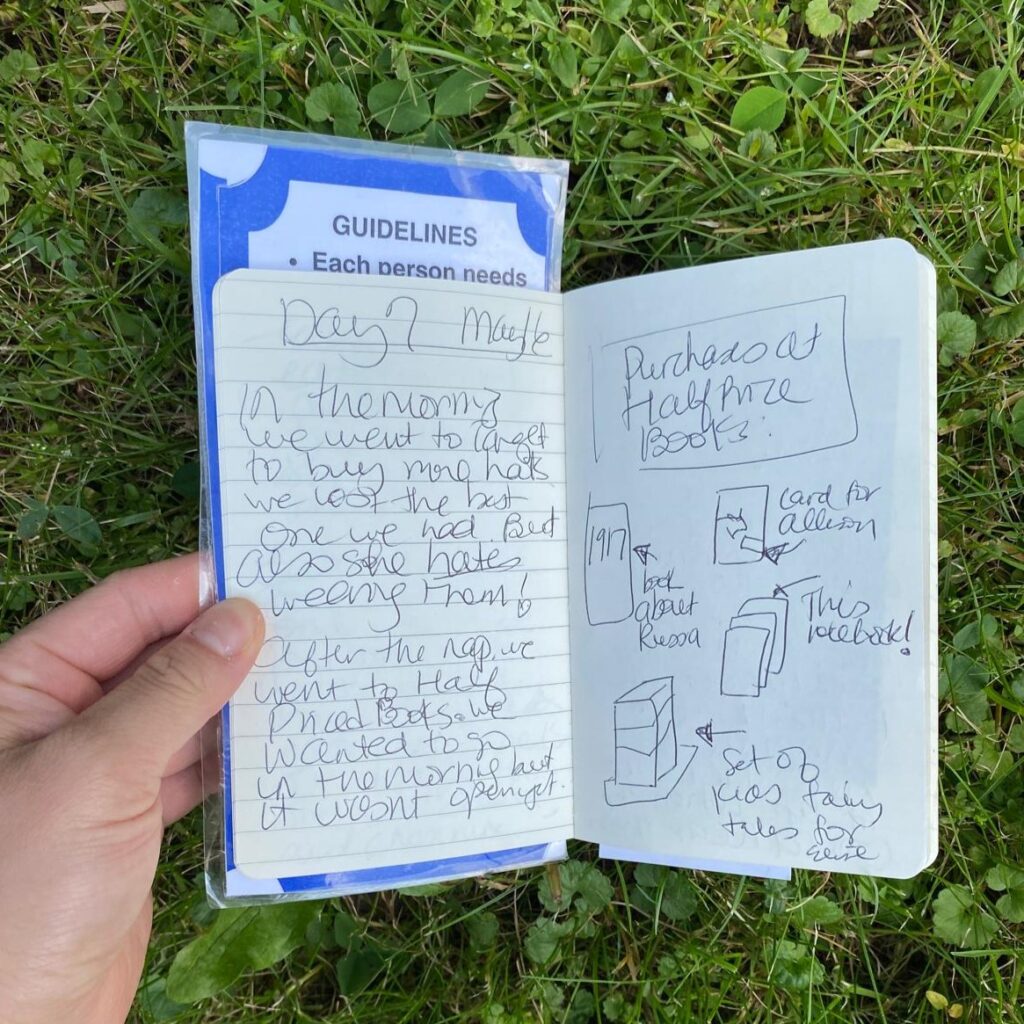 GUIDELINES
• Each person needs
Day 7 May
In the morning
we went to Target
to buy more hats
we lost the best
one we had. But
also she hates
wearing Them!
After the nap, we
went to Half
Priced Books. We
wanted to go
in the morning but
it wasnt open yet.
Purchases at
Half Prize
Books:
1917
book
about
Russa
card for
allison
This
notebook!
Set of
kids fairy
tales for